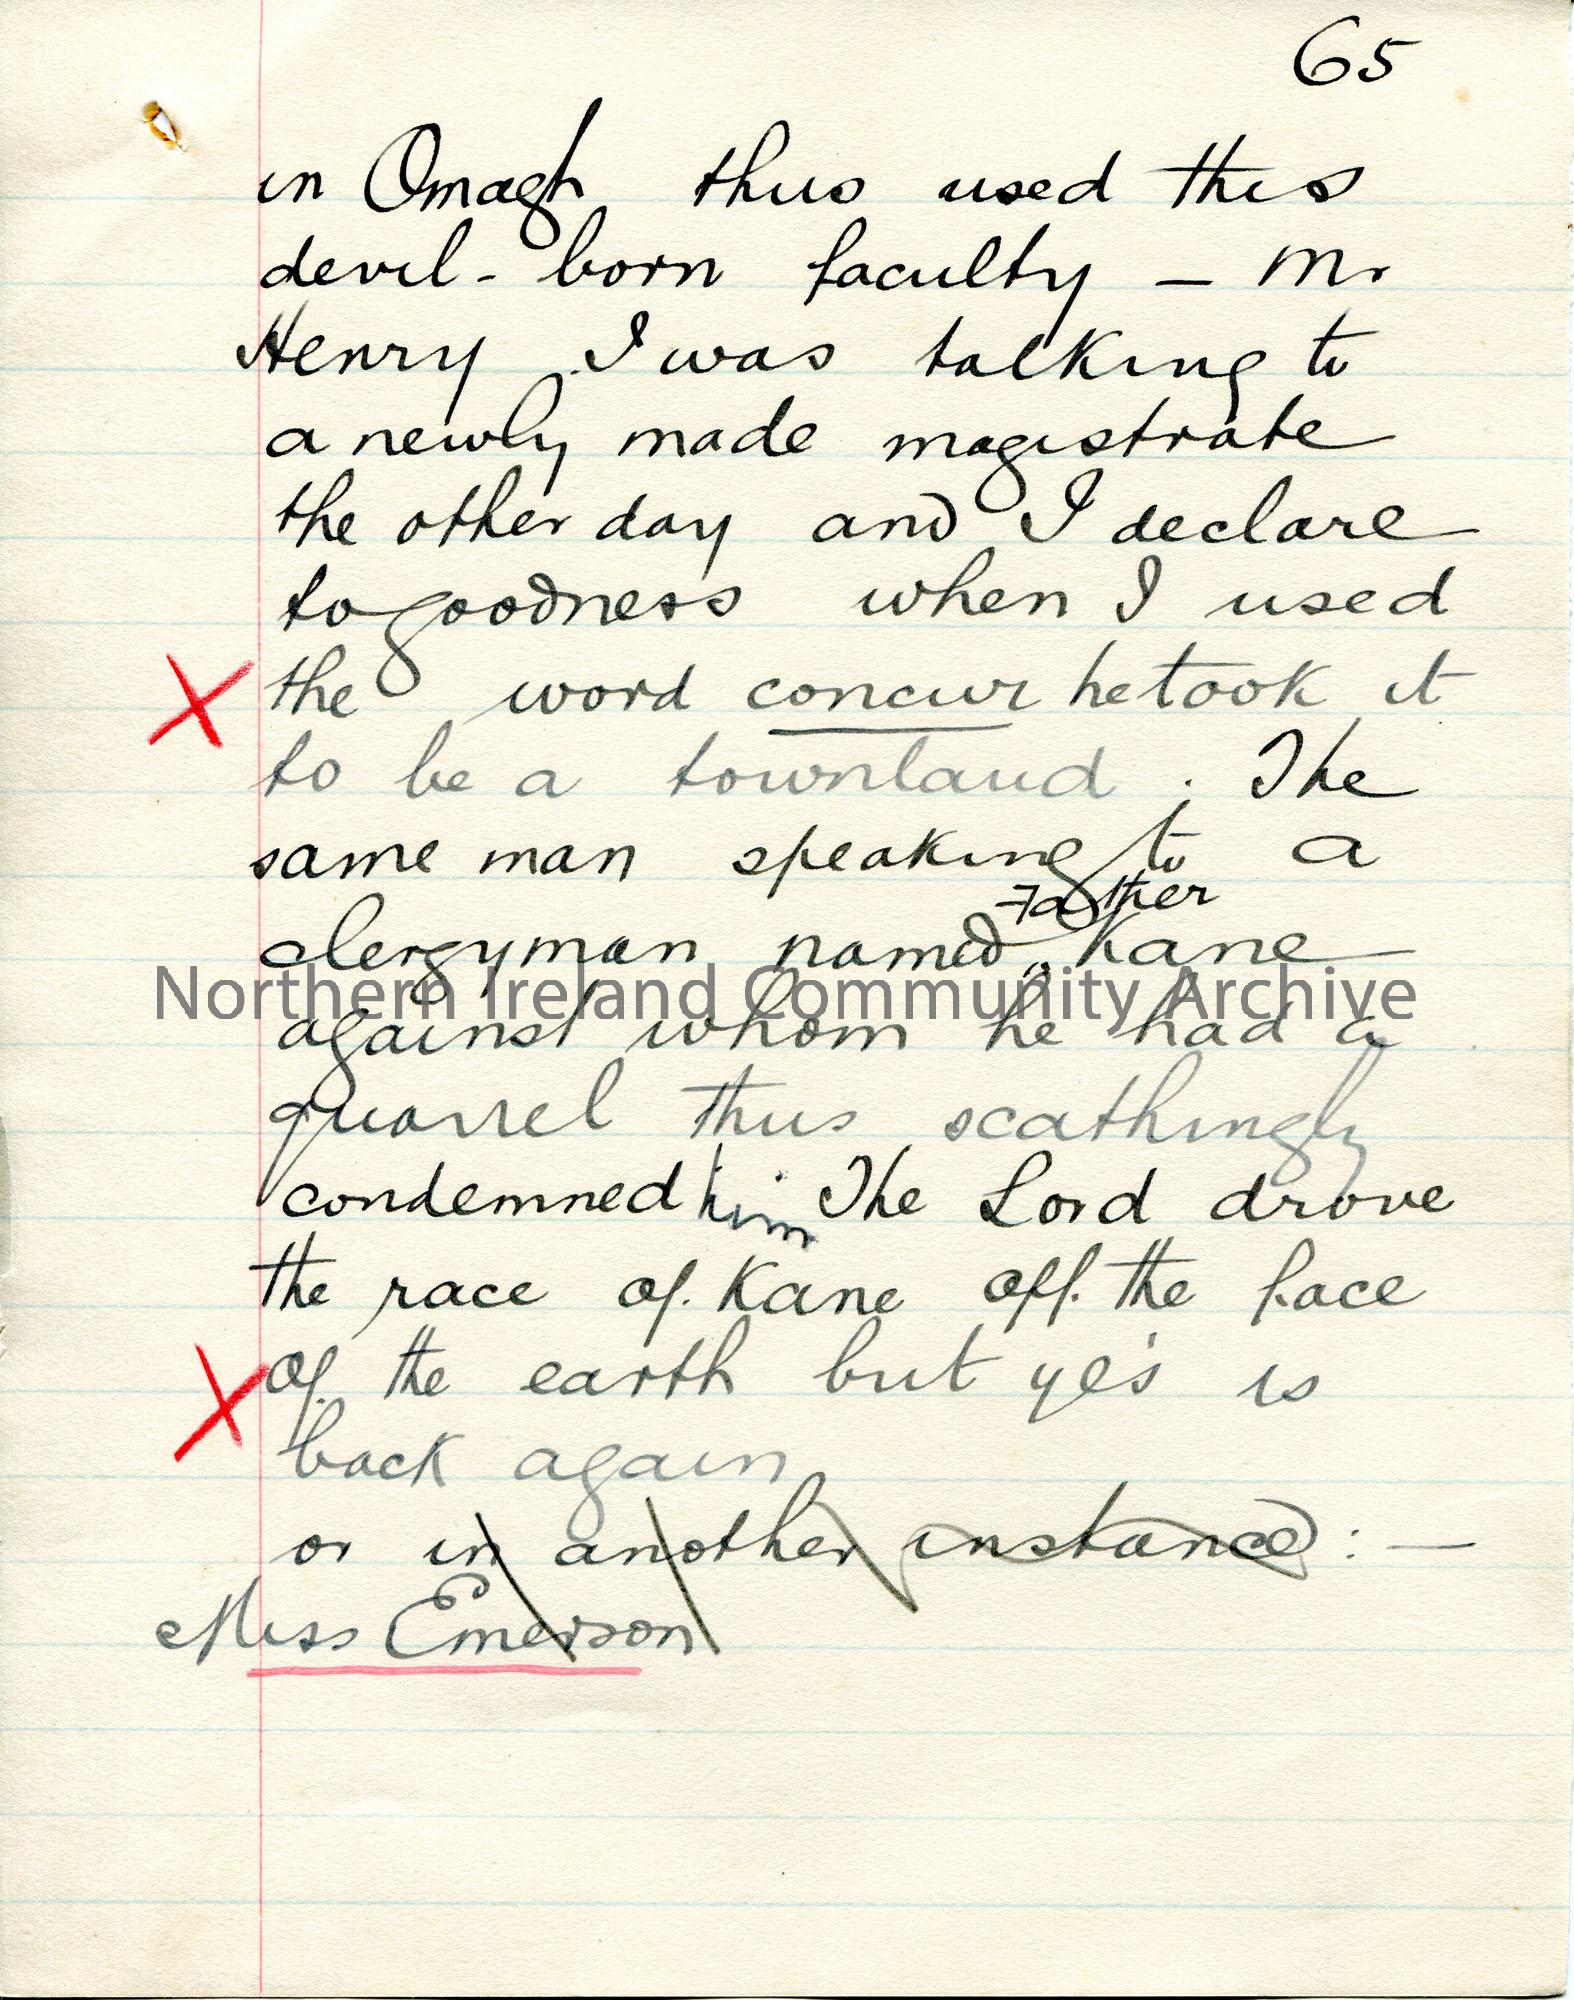 65
in Omagh thus used this
devil-born faculty — Mr
Henry I was talking to
a newly made magistrate
the other day and I declare
to goodness when I used
X the word concur he took it
to be a townland. The
same man speaking to a
Father
clergyman named Kane
Northern Ireland Community Archive
against whom he had a
quarrel thus scathingly
condemned him The Lord drove
the race of Kane off the face
X of the earth but ye's is
back again
or in another instance: —
Miss Emerson